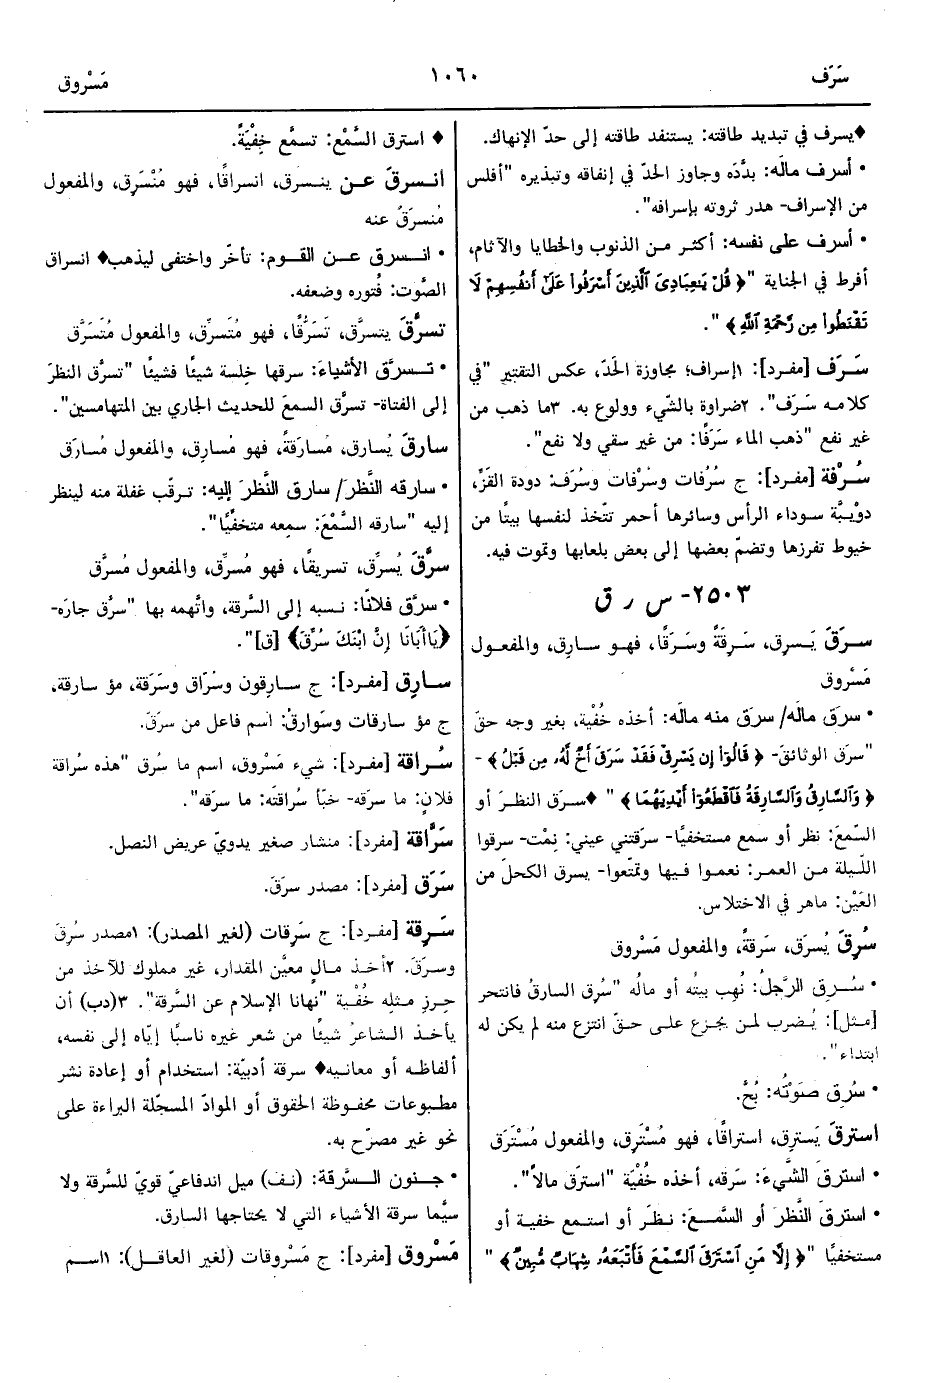 سَرَف
١٠٦٠
مَسْروق
♦يسرف في تبديد طاقته: يستنفد طاقته إلى حدّ الإنهاك.
• أسرف مالَه: بدَّده وجاوز الحدّ في إنفاقه وتبذيره "أفلس
من الإسراف- هدر ثروته بإسرافه".
• أسرف على نفسه: أكثر من الذنوب والخطايا والآثام،
أفرط في الجناية "﴿ قُلْ يَـٰعِبَادِىَ ٱلَّذِينَ أَسْرَفُوا۟ عَلَىٰٓ أَنفُسِهِمْ لَا
تَقْنَطُوا۟ مِن رَّحْمَةِ ٱللَّهِ ﴾ ".
سَرَف [مفرد]: ١إسراف؛ مجاوزة الحَدّ، عكس التقتير "في
كلامه سَرَف". ٢ضراوة بالشّيء وولوع به. ٣ما ذهب من
غير نفع "ذهب الماء سَرَفًا: من غير سقي ولا نفع".
سُرْفة [مفرد]: ج سُرُفات وسُرْفات وسُرَف: دودة القَزّ،
دوْيبَّة سوداء الرأس وسائرها أحمر تتّخذ لنفسها بيتًا من
خيوط تفرزها وتضمّ بعضها إلى بعض بلعابها وتموت فيه.
٢٥٠٣- س ر ق
سرَقَ يَسرِق، سَرِقَةً وسَرَقًا، فهو سارِق، والمفعول
مَسْروق
• سرَق مالَه/ سرَق منه مالَه: أخذه خُفْية، بغير وجه حقّ
"سرَق الوثائقَ- ﴿ قَالُوٓا۟ إِن يَسْرِقْ فَقَدْ سَرَقَ أَخٌ لَّهُۥ مِن قَبْلُ ﴾ -
﴿ وَٱلسَّارِقُ وَٱلسَّارِقَةُ فَٱقْطَعُوٓا۟ أَيْدِيَهُمَا ﴾ " ♦سرَق النظرَ أو
السّمعَ: نظر أو سمع مستخفيًا- سرقتني عيني: نِمْت- سرقوا
اللّيلة من العمر: نعموا فيها وتمتّعوا- يسرق الكحلَ من
العَيْن: ماهر في الاختلاس.
سُرِقَ يُسرَق، سَرِقةً، والمفعول مَسْروق
• سُرِق الرَّجلُ: نُهِب بيتُه أو مالُه "سُرق السارقُ فانتحر
[مثل]: يُضرب لمن يجزع على حقّ انتزع منه لم يكن له
ابتداء".
• سُرِق صَوْتُه: بُحَّ.
استرقَ يَسترِق، استراقًا، فهو مُسْترِق، والمفعول مُسْتَرَق
• استرق الشَّيءَ: سَرقه، أخذه خُفْيَة "استرَق مالاً".
• استرقَ النَّظر أو السَّمعَ: نظَر أو استمع خفية أو
مستخفيًا "﴿ إِلَّا مَنِ ٱسْتَرَقَ ٱلسَّمْعَ فَأَتْبَعَهُۥ شِهَابٌ مُّبِينٌ ﴾ "
♦ استرق السَّمْع: تسمَّع خِفْيَةً.
انسرقَ عن ينسرق، انسراقًا، فهو مُنْسَرِق، والمفعول
مُنسرَقٌ عنه
• انسرق عن القوم: تأخّر واختفى ليذهب♦ انسراق
الصَّوت: فُتوره وضعفه.
تسرَّقَ يتسرَّق، تَسَرُّقًا، فهو مُتَسَرِّق، والمفعول مُتَسَرَّق
• تسرَّق الأشياءَ: سرقها خِلسة شيئًا فشيئًا "تسرَّق النظرَ
إلى الفتاة- تسرَّق السمعَ للحديث الجاري بين المتهامسين".
سارقَ يُسارق، مُسارَقةً، فهو مُسارِق، والمفعول مُسارَق
• سارقه النَّظر/ سارق النَّظرَ إليه: ترقّب غفلة منه لينظر
إليه "سارقه السَّمْعَ: سمعه متخفِّيًا".
سرَّقَ يُسرِّق، تسريقًا، فهو مُسرِّق، والمفعول مُسرَّق
• سرَّق فلانًا: نسبه إلى السَّرِقة، واتَّهمه بها "سرَّق جارَه-
﴿يَاأَبَانَا إِنَّ ابْنَكَ سُرِّقَ﴾ [ق]".
سارِق [مفرد]: ج سارِقون وسُرّاق وسَرَقة، مؤ سارقة،
ج مؤ سارقات وسَوارِقُ: اسم فاعل من سرَقَ.
سُراقة [مفرد]: شيء مَسْروق، اسم ما سُرق "هذه سُراقة
فلان: ما سرقه- خبّأ سُراقتَه: ما سرقه".
سَرَّاقة [مفرد]: منشار صغير يدويّ عريض النصل.
سَرَق [مفرد]: مصدر سرَقَ.
سَرِقة [مفرد]: ج سَرِقات (لغير المصدر): ١مصدر سُرِقَ
وسرَقَ. ٢أخذ مالٍ معيَّن المقدار، غير مملوك للآخذ من
حِرزِ مثلِه خُفْية "نهانا الإسلام عن السَّرقة". ٣(دب) أن
يأخذ الشاعرُ شيئًا من شعر غيره ناسبًا إيّاه إلى نفسه،
ألفاظه أو معانيه♦ سرقة أدبيّة: استخدام أو إعادة نشر
مطبوعات محفوظة الحقوق أو الموادّ المسجّلة البراءة على
نحو غير مصرّح به.
• جنون السَّرقة: (نف) ميل اندفاعيّ قويّ للسَّرقة ولا
سيَّما سرقة الأشياء التي لا يحتاجها السارق.
مَسْروق [مفرد]: ج مَسْروقات (لغير العاقل): ١اسم